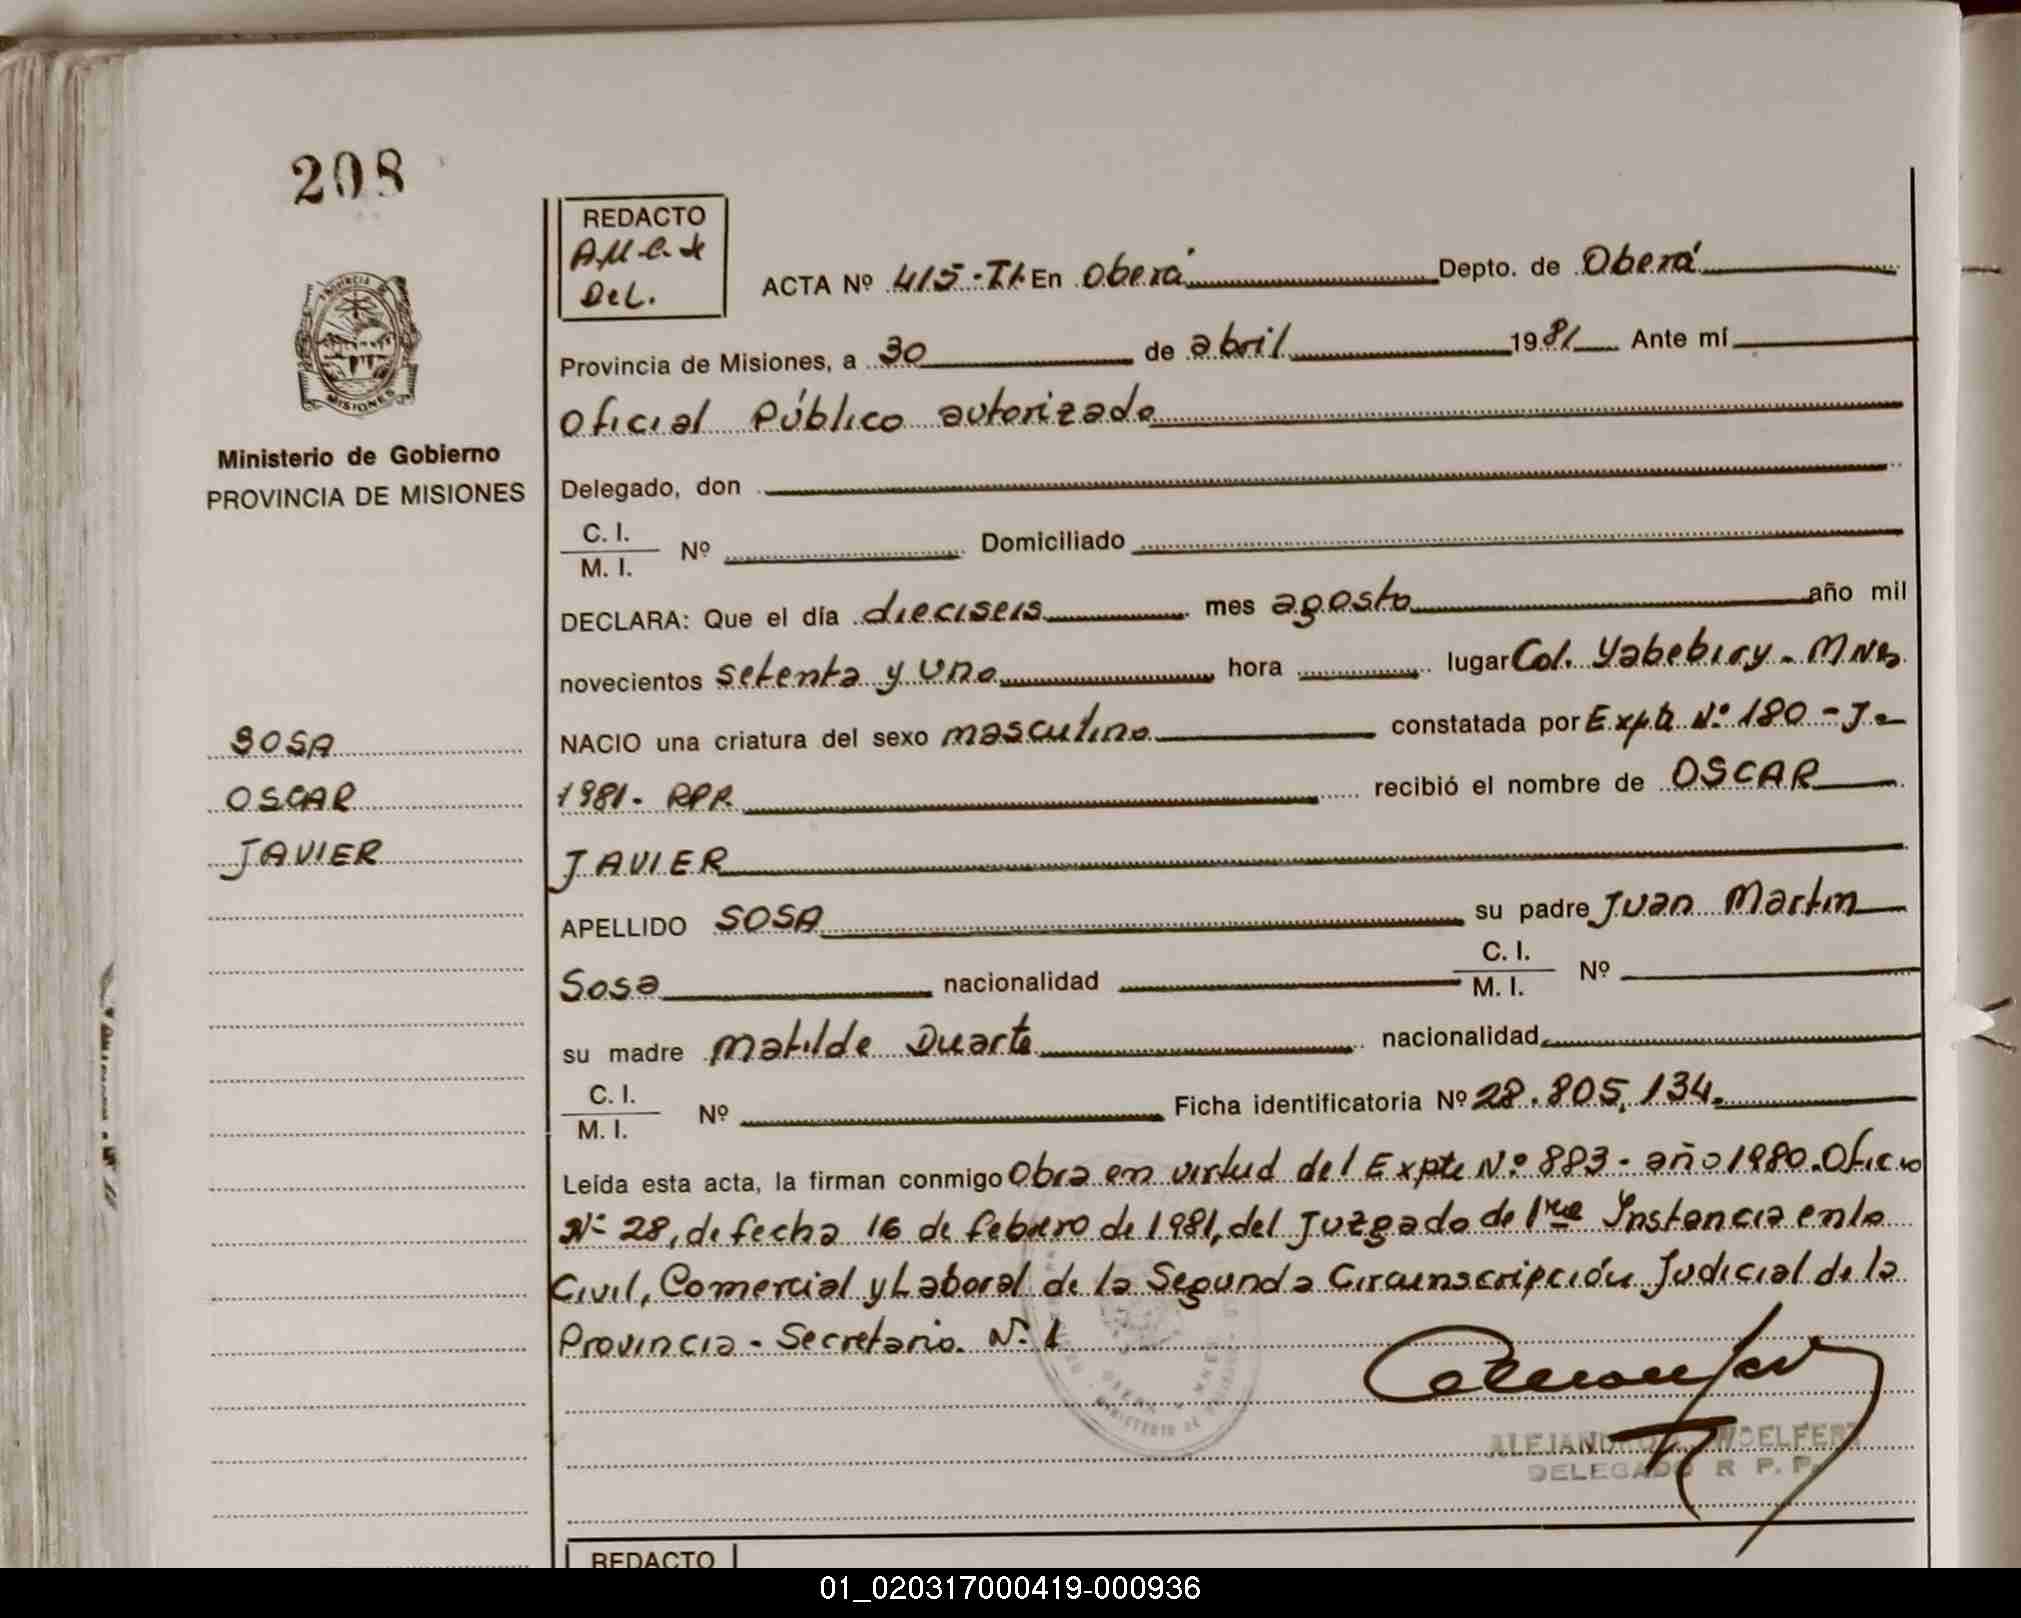 208
REDACTO
DeL.
ACTA Nº 415-TI- En Oberá Depto. de Oberá
Provincia de Misiones, a 30 de abril 1981 Ante mí
Oficial Público autorizado
MISIONES
Ministerio de Gobierno
PROVINCIA DE MISIONES
Delegado, don
C. I.
M. I. Nº Domiciliado
DECLARA: Que el día dieciseis mes agosto año mil
novecientos setenta y uno hora lugar Col. Yabebiry - Mnes
SOSA
OSCAR
JAVIER
NACIO una criatura del sexo masculino constatada por Expte Nº 180 - J -
1981 - RPR recibió el nombre de OSCAR
JAVIER
APELLIDO SOSA su padre Juan Martin
Sosa nacionalidad C. I. M. I. Nº
su madre Matilde Duarte nacionalidad
C. I.
M. I. Nº Ficha identificatoria Nº 28.805.134.
Leída esta acta, la firman conmigo Obra en virtud del Expte Nº 883 - año 1980. Oficio
Nº 28, de fecha 16 de febrero de 1981, del Juzgado de 1ra Instancia en lo
Civil, Comercial y Laboral de la Segunda Circunscripción Judicial de la
Provincia - Secretaria Nº 1
DELEGADO R P. P.
REDACTO
01_020317000419-000936